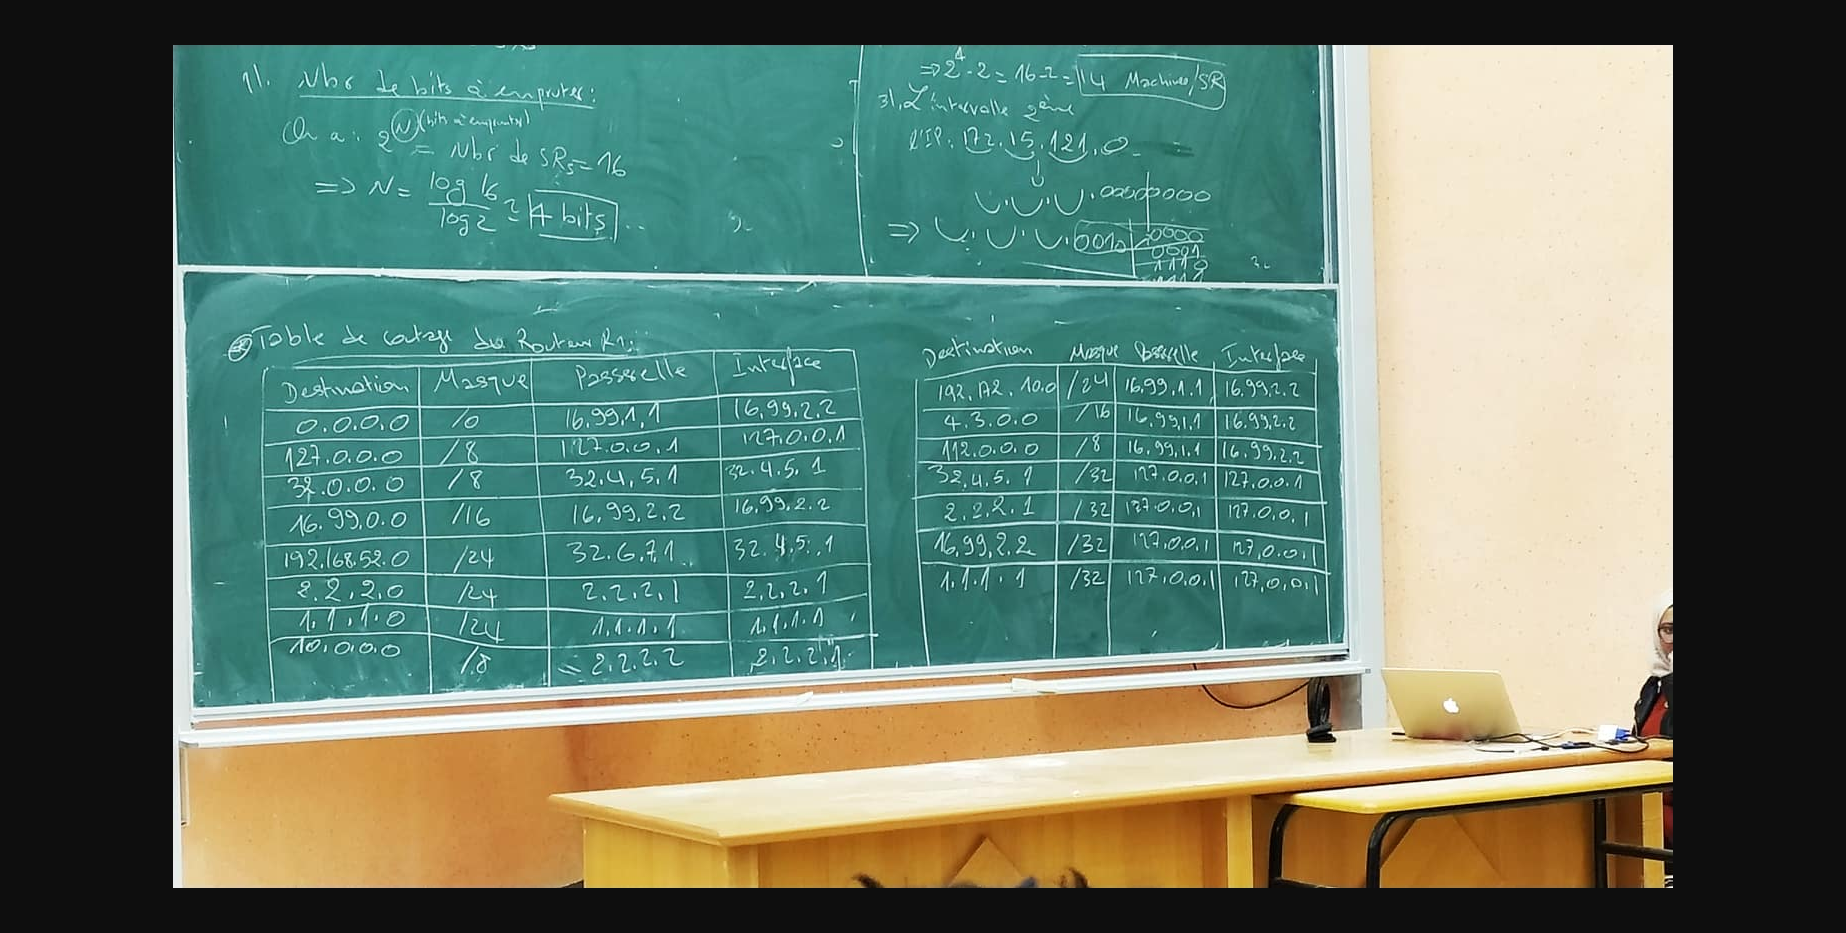 1). Nbr de bits à emprunter :
On a : 2^N (bits à emprunter) = Nbr de SRs = 16
=> N = log 16 / log 2 = 4 bits
=> 2^4 - 2 = 16 - 2 = 14 Machines/SR
3). L'intervalle 2ème
l'IP : 172.15.121.0
.00000000
=> 0010 0000
0001
1110
1111
Table de routage du Routeur R1 :
Destination Masque Passerelle Interface
0.0.0.0 /0 16.99.1.1 16.99.2.2
127.0.0.0 /8 127.0.0.1 127.0.0.1
32.0.0.0 /8 32.4.5.1 32.4.5.1
16.99.0.0 /16 16.99.2.2 16.99.2.2
192.168.52.0 /24 32.6.7.1 32.4.5.1
2.2.2.0 /24 2.2.2.1 2.2.2.1
1.1.1.0 /24 1.1.1.1 1.1.1.1
10.0.0.0 /8 2.2.2.2 2.2.2.1
Destination Masque Passerelle Interface
192.172.10.0 /24 16.99.1.1 16.99.2.2
4.3.0.0 /16 16.99.1.1 16.99.2.2
112.0.0.0 /8 16.99.1.1 16.99.2.2
32.4.5.1 /32 127.0.0.1 127.0.0.1
2.2.2.1 /32 127.0.0.1 127.0.0.1
16.99.2.2 /32 127.0.0.1 127.0.0.1
1.1.1.1 /32 127.0.0.1 127.0.0.1